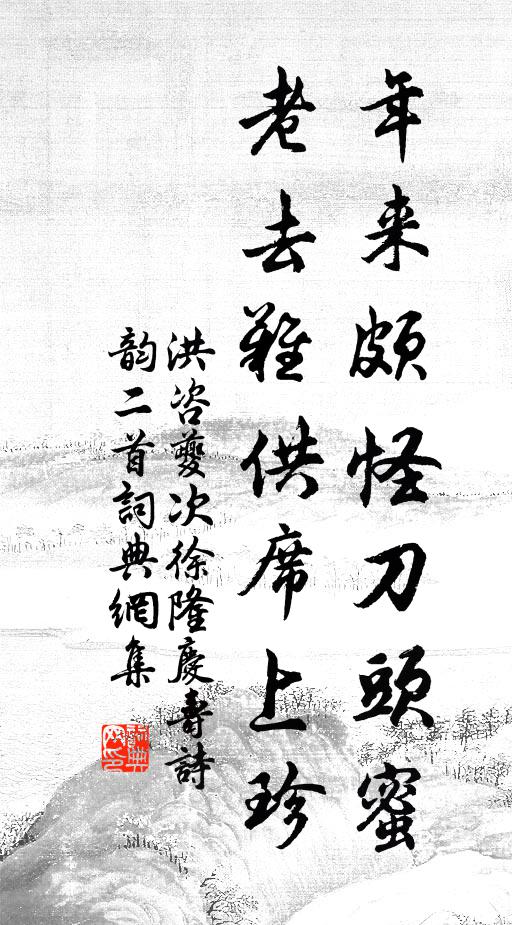 年来頗怪刀頭蜜
老去難供席上珍
洪咨夔次徐隆慶壽詩
韵二首詞典網集